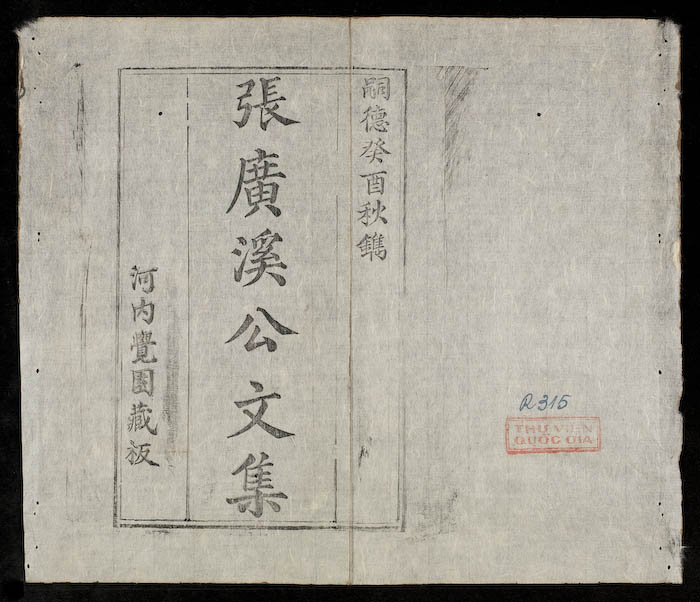 嗣德癸酉秋鐫
張廣溪公文集
河内覺園藏板
R 315
THƯ VIỆN
QUỐC GIA